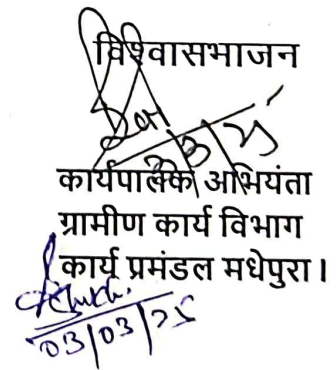 विश्वासभाजन
3/3/25
कार्यपालक अभियंता
ग्रामीण कार्य विभाग
कार्य प्रमंडल मधेपुरा।
03/03/25